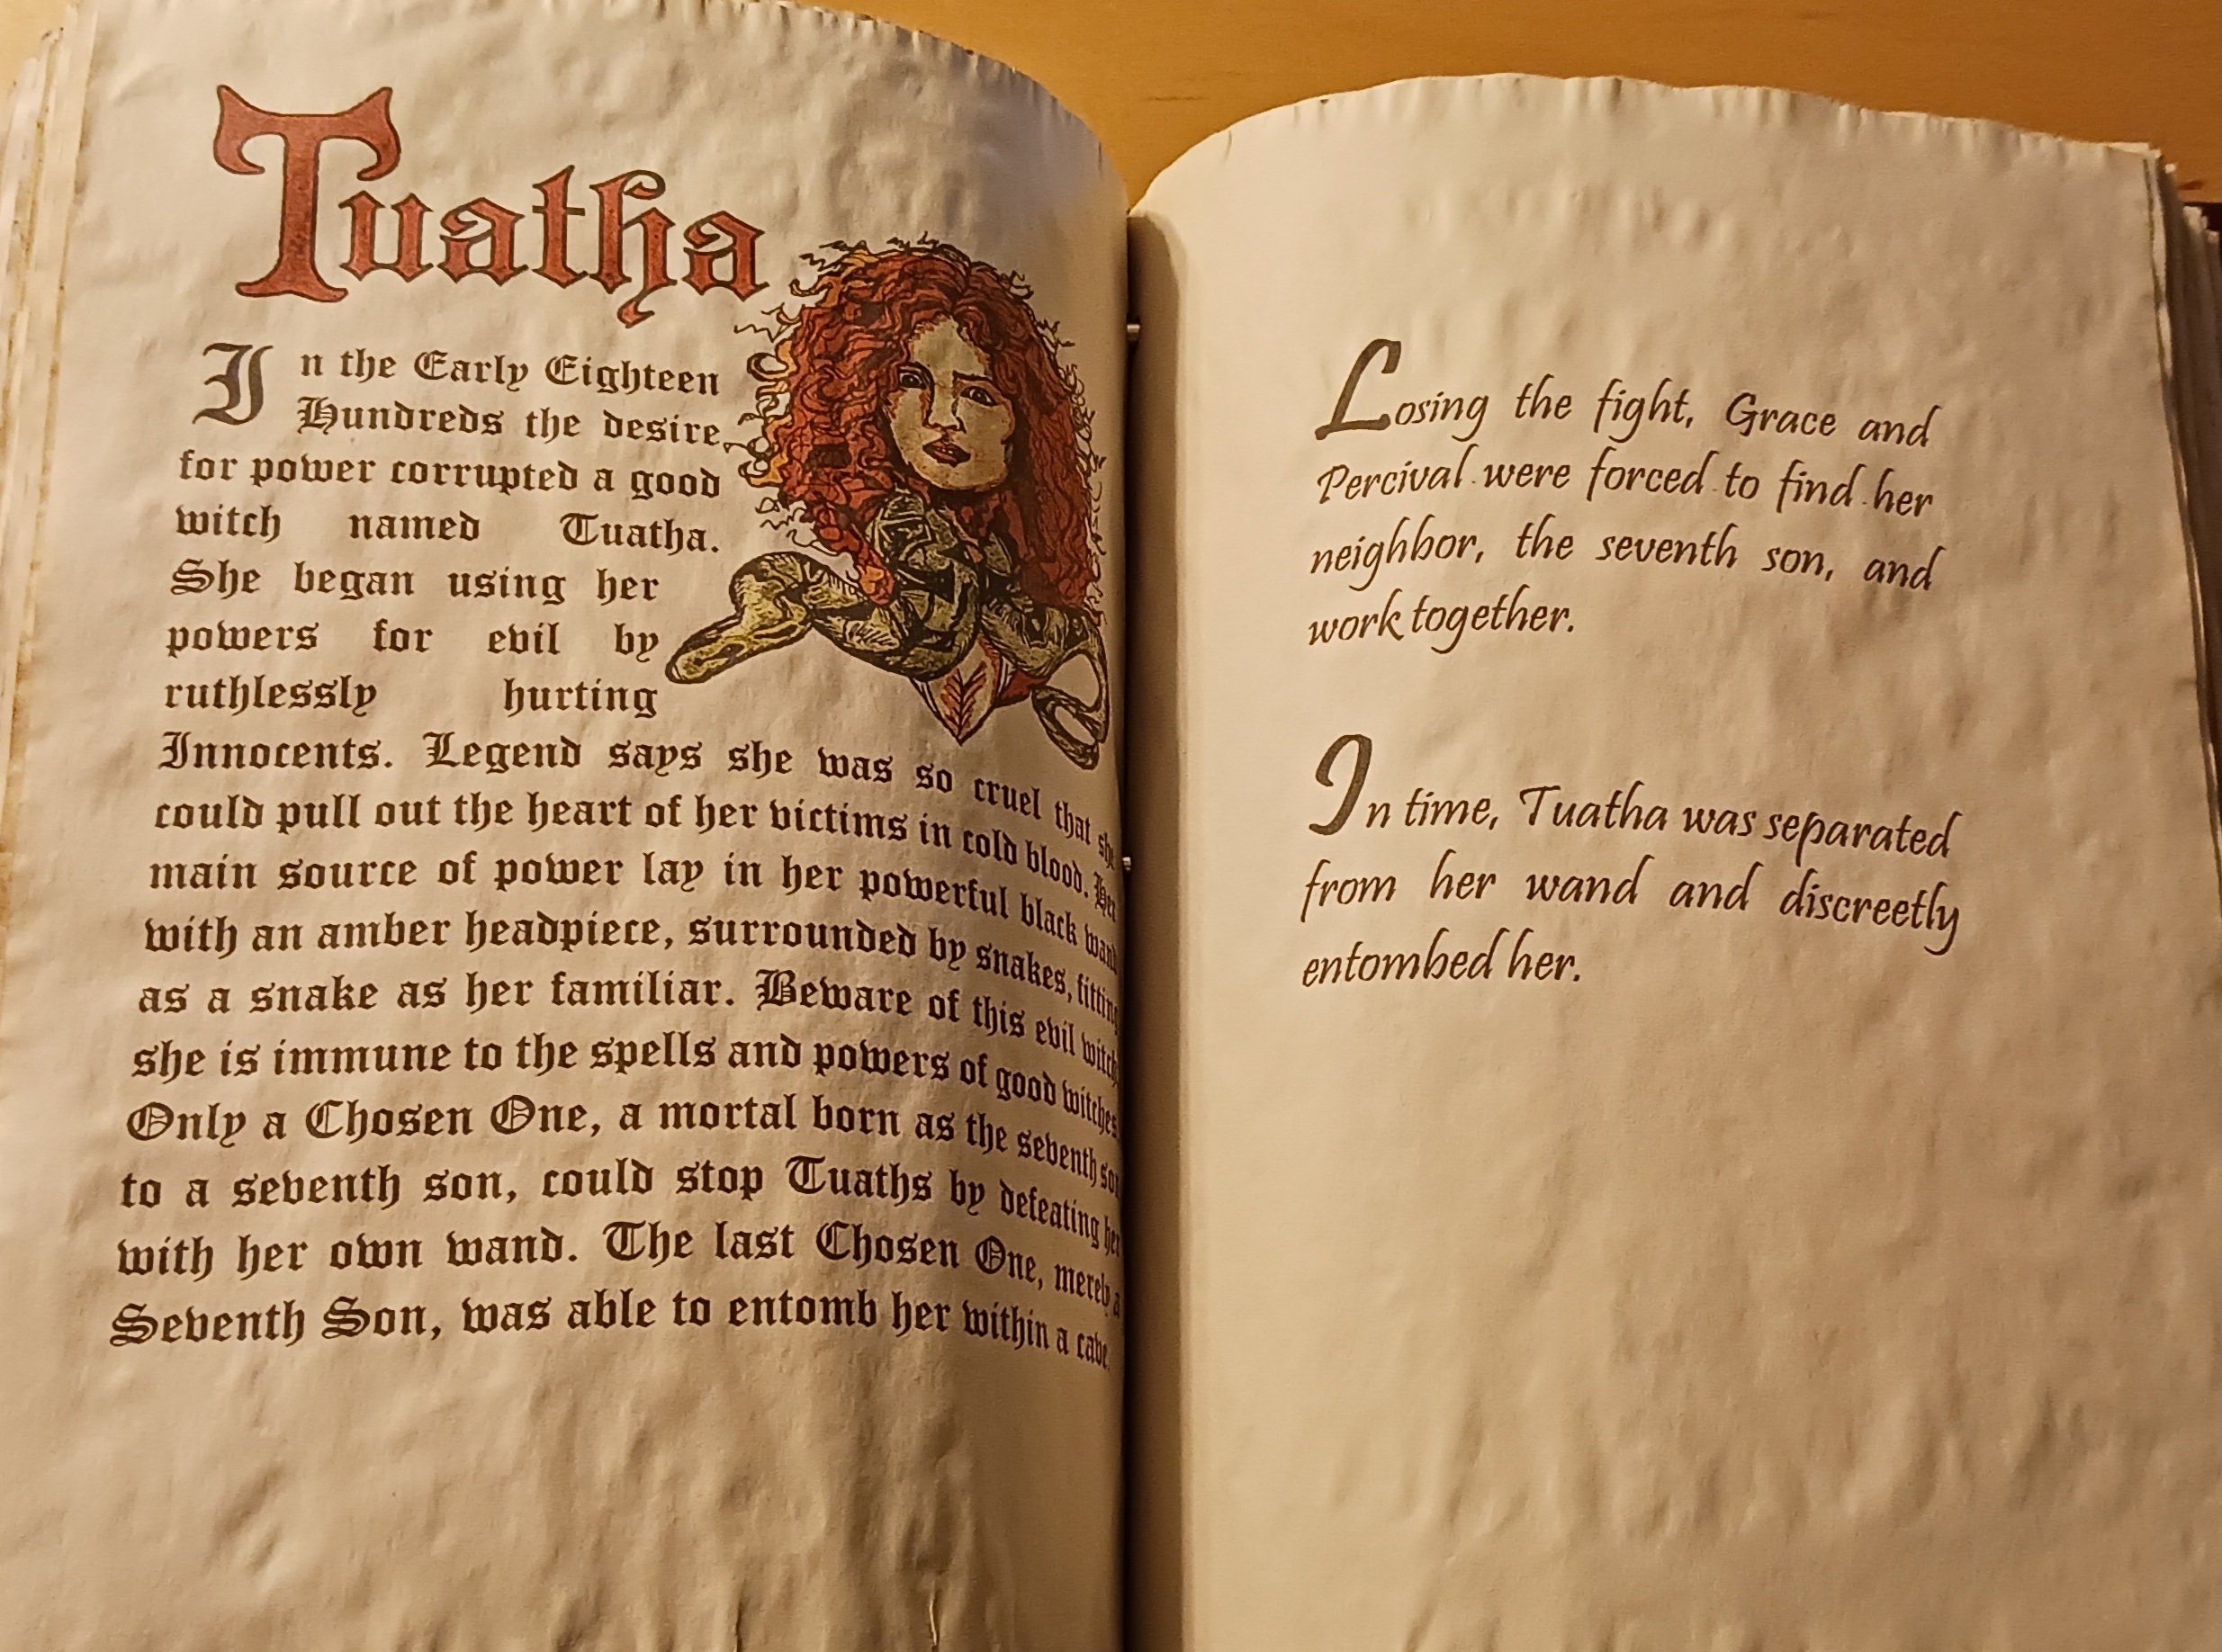 Tuatha
In the Early Eighteen
Hundreds the desire
for power corrupted a good
witch named Tuatha.
She began using her
powers for evil by
ruthlessly hurting
Innocents. Legend says she was so cruel that she
could pull out the heart of her victims in cold blood. Her
main source of power lay in her powerful black wand
with an amber headpiece, surrounded by snakes, fitting
as a snake as her familiar. Beware of this evil witch
she is immune to the spells and powers of good witches
Only a Chosen One, a mortal born as the seventh son
to a seventh son, could stop Tuaths by defeating her
with her own wand. The last Chosen One, merely a
Seventh Son, was able to entomb her within a cave
Losing the fight, Grace and
Percival were forced to find her
neighbor, the seventh son, and
work together.
In time, Tuatha was separated
from her wand and discreetly
entombed her.